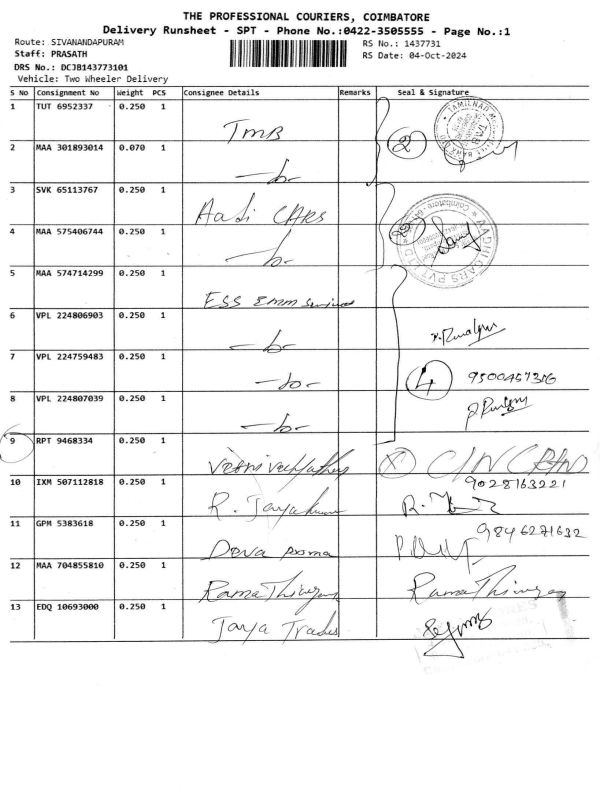 THE PROFESSIONAL COURIERS, COIMBATORE
Delivery Runsheet - SPT - Phone No.:0422-3505555 - Page No.:1
Route: SIVANANDAPURAM RS No.: 1437731
Staff: PRASATH RS Date: 04-Oct-2024
DRS No.: DCJB143773101
Vehicle: Two Wheeler Delivery
S No Consignment No Weight PCS Consignee Details Remarks Seal & Signature
1 TUT 6952337 0.250 1 TMB 2
2 MAA 301893014 0.070 1 —do-
3 SVK 65113767 0.250 1 Aadi CARS
4 MAA 575406744 0.250 1 —do- AADHI CARS PVT LTD
5 MAA 574714299 0.250 1 ESS Emm Services
6 VPL 224806903 0.250 1 —do-
7 VPL 224759483 0.250 1 —do- 4 9500457356
8 VPL 224807039 0.250 1 —do-
9 RPT 9468334 0.250 1
10 IXM 507112818 0.250 1 R. Jayakumar 9028163221
11 GPM 5383618 0.250 1 Deva 9846271632
12 MAA 704855810 0.250 1 Rama
13 EDQ 10693000 0.250 1 Jaya Trades